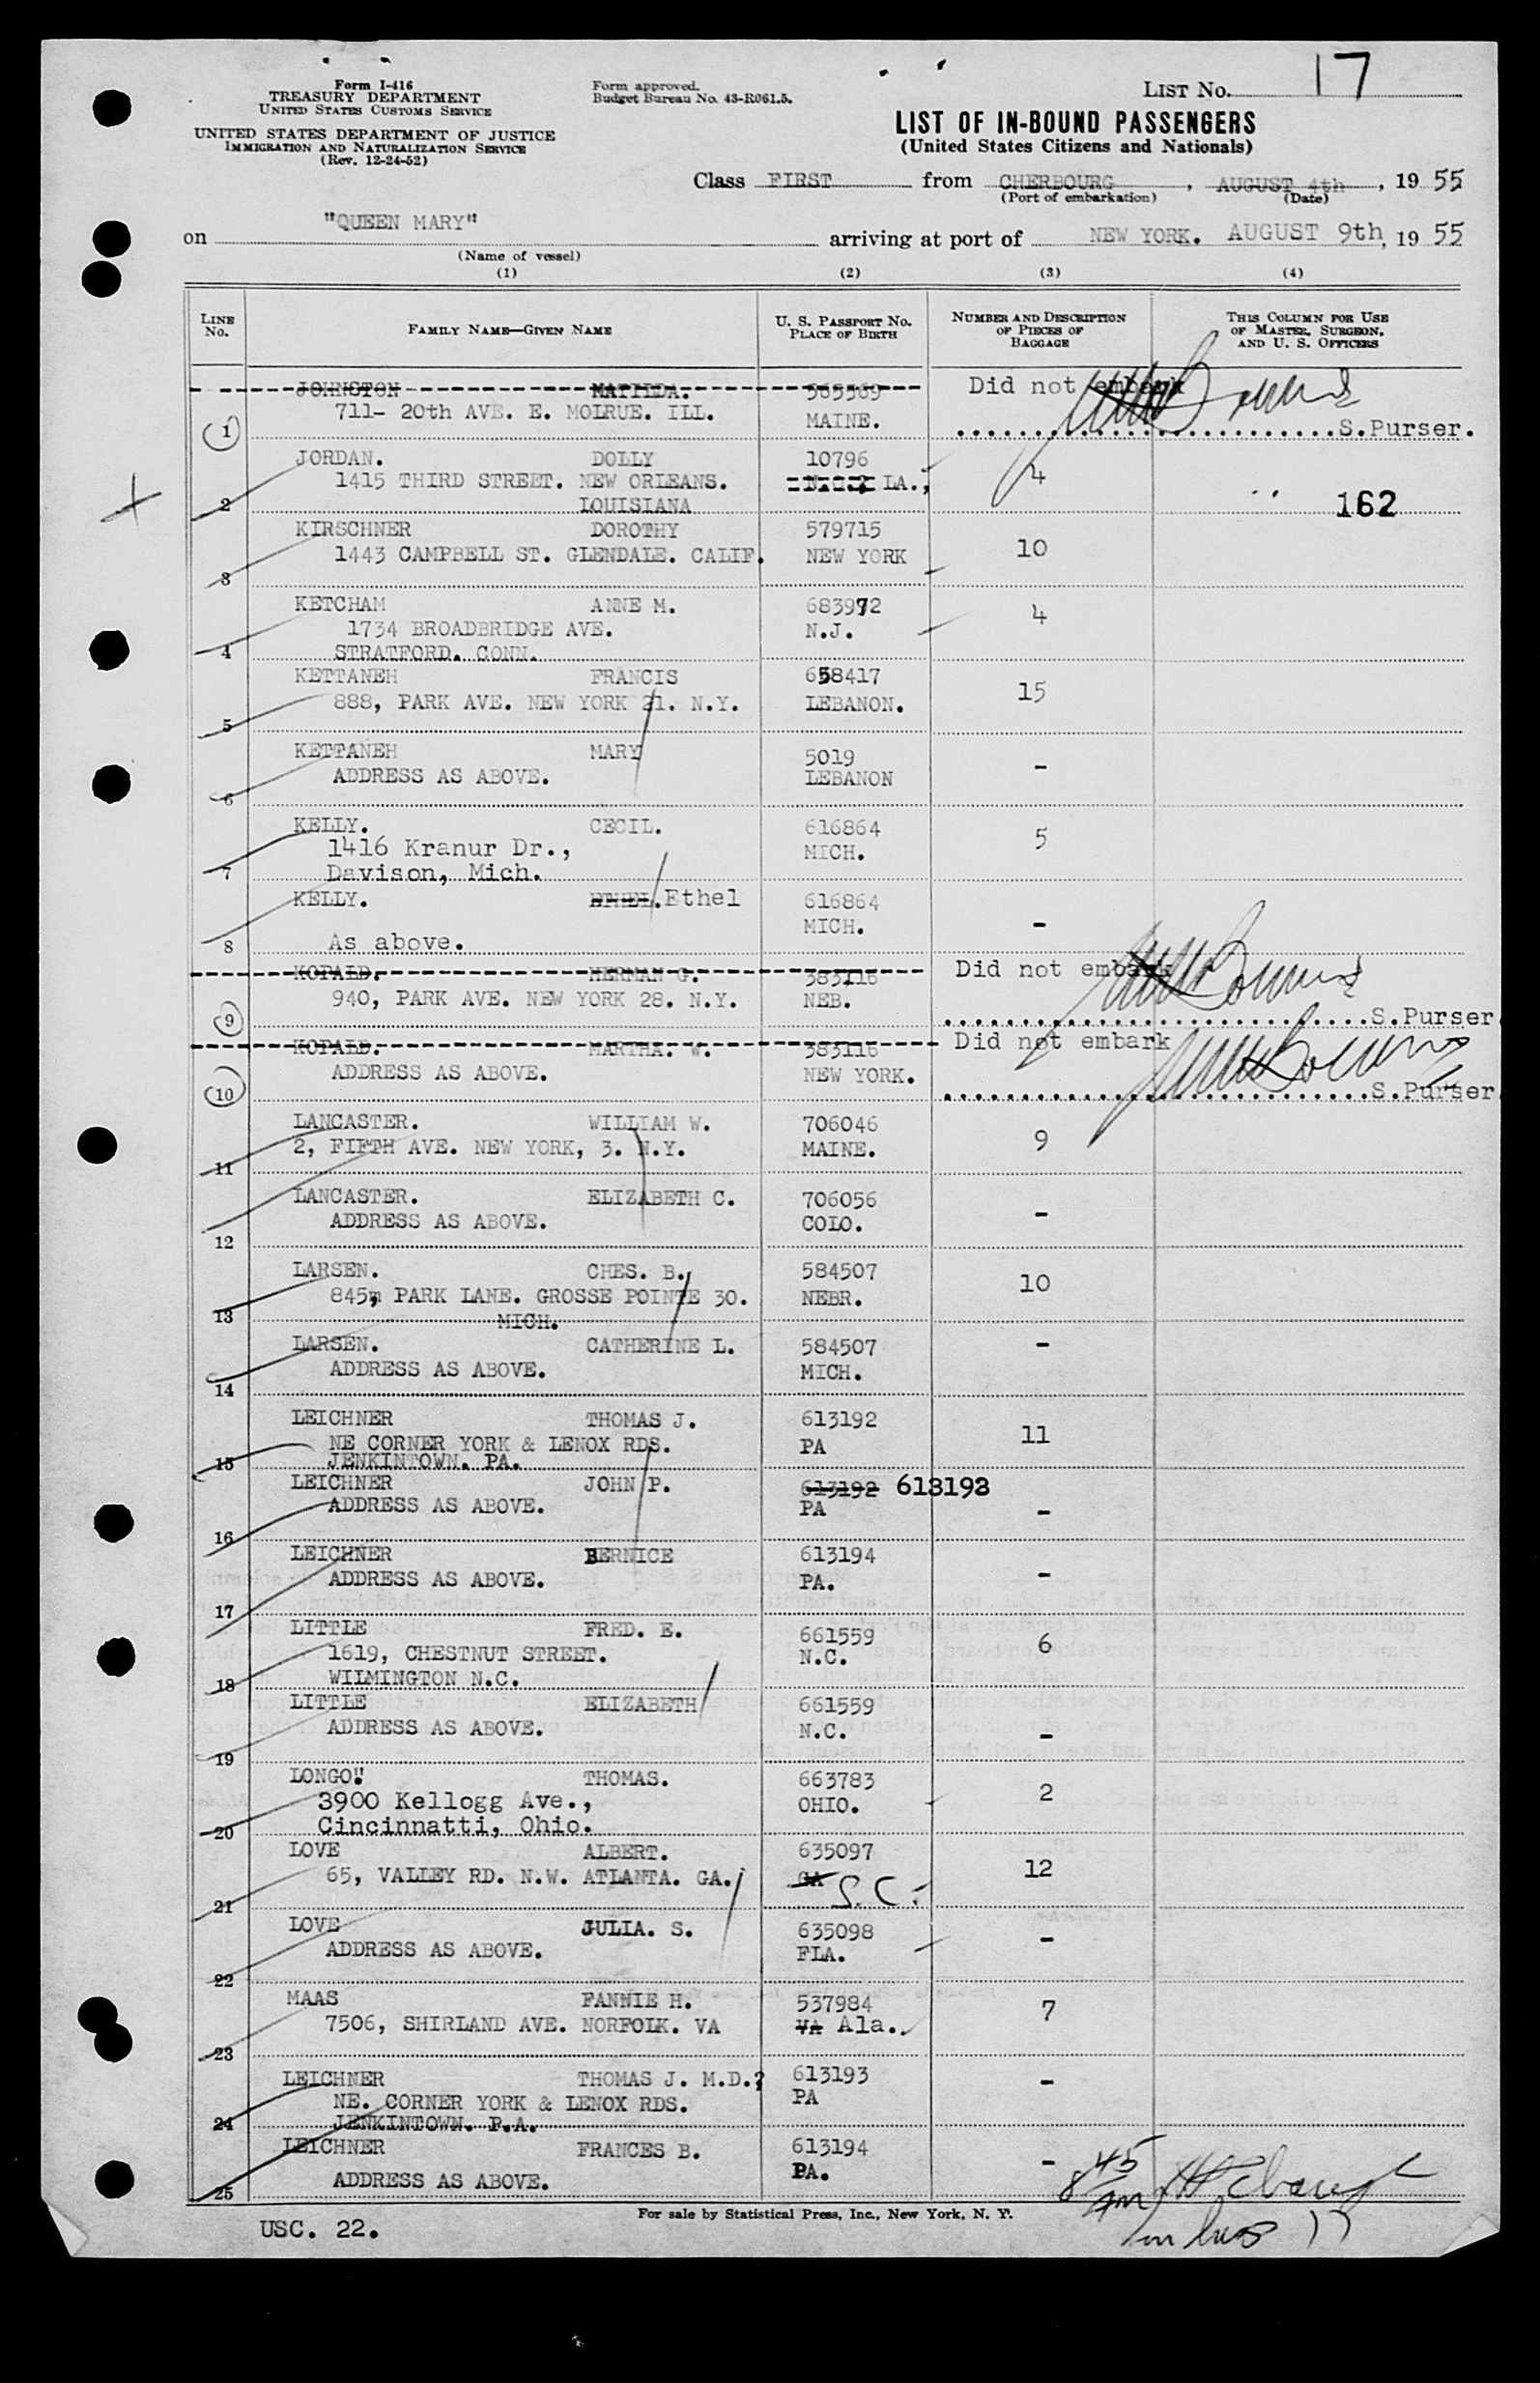 Form I-416
TREASURY DEPARTMENT
UNITED STATES CUSTOMS SERVICE
UNITED STATES DEPARTMENT OF JUSTICE
IMMIGRATION AND NATURALIZATION SERVICE
(Rev. 12-24-52)
Form approved.
Budget Bureau No. 43-R061.5.
LIST No. 17
LIST OF IN-BOUND PASSENGERS
(United States Citizens and Nationals)
Class FIRST from CHERBOURG, AUGUST 4th, 19 55
(Port of embarkation) (Date)
on "QUEEN MARY" arriving at port of NEW YORK. AUGUST 9th, 19 55
(Name of vessel)
(1) (2) (3) (4)
LINE No. FAMILY NAME—GIVEN NAME U. S. PASSPORT No. PLACE OF BIRTH NUMBER AND DESCRIPTION OF PIECES OF BAGGAGE THIS COLUMN FOR USE OF MASTER, SURGEON, AND U. S. OFFICERS
JOHNSTON MATILDA. 565569 Did not embark
711- 20th AVE. E. MOLRUE. ILL. MAINE.
1 S.Purser.
JORDAN. DOLLY 10796 4
1415 THIRD STREET. NEW ORLEANS. LA.,
2 LOUISIANA 162
KIRSCHNER DOROTHY 579715 10
1443 CAMPBELL ST. GLENDALE. CALIF. NEW YORK
3
KETCHAM ANNE M. 683972 4
1734 BROADBRIDGE AVE. N.J.
4 STRATFORD. CONN.
KETTANEH FRANCIS 658417 15
888, PARK AVE. NEW YORK 21. N.Y. LEBANON.
5
KETTANEH MARY 5019 -
ADDRESS AS ABOVE. LEBANON
6
KELLY. CECIL. 616864 5
1416 Kranur Dr., MICH.
7 Davison, Mich.
KELLY. Ethel 616864 -
MICH.
8 As above.
KOPALD. HERMAN G. 383116 Did not embark
940, PARK AVE. NEW YORK 28. N.Y. NEB.
9 S.Purser
KOPALD. MARTHA. W. 383116 Did not embark
ADDRESS AS ABOVE. NEW YORK.
10 S.Purser
LANCASTER. WILLIAM W. 706046 9
2, FIFTH AVE. NEW YORK, 3. N.Y. MAINE.
11
LANCASTER. ELIZABETH C. 706056 -
ADDRESS AS ABOVE. COLO.
12
LARSEN. CHES. B. 584507 10
845, PARK LANE. GROSSE POINTE 30. NEBR.
13 MICH.
LARSEN. CATHERINE L. 584507 -
ADDRESS AS ABOVE. MICH.
14
LEICHNER THOMAS J. 613192 11
NE CORNER YORK & LENOX RDS. PA
15 JENKINTOWN. PA.
LEICHNER JOHN P. 613192 613193 -
ADDRESS AS ABOVE. PA
16
LEICHNER BERNICE 613194 -
ADDRESS AS ABOVE. PA.
17
LITTLE FRED. E. 661559 6
1619, CHESTNUT STREET. N.C.
18 WILMINGTON N.C.
LITTLE ELIZABETH 661559 -
ADDRESS AS ABOVE. N.C.
19
LONGO. THOMAS. 663783 2
3900 Kellogg Ave., OHIO.
20 Cincinnatti, Ohio.
LOVE ALBERT. 635097 12
65, VALLEY RD. N.W. ATLANTA. GA. GA S.C.
21
LOVE JULIA. S. 635098 -
ADDRESS AS ABOVE. FLA.
22
MAAS FANNIE H. 537984 7
7506, SHIRLAND AVE. NORFOLK. VA VA Ala.
23
LEICHNER THOMAS J. M.D. 613193 -
NE. CORNER YORK & LENOX RDS. PA
24 JENKINTOWN. P.A.
LEICHNER FRANCES B. 613194 -
ADDRESS AS ABOVE. PA.
25 8 45 AM
For sale by Statistical Press, Inc., New York, N. Y.
USC. 22.